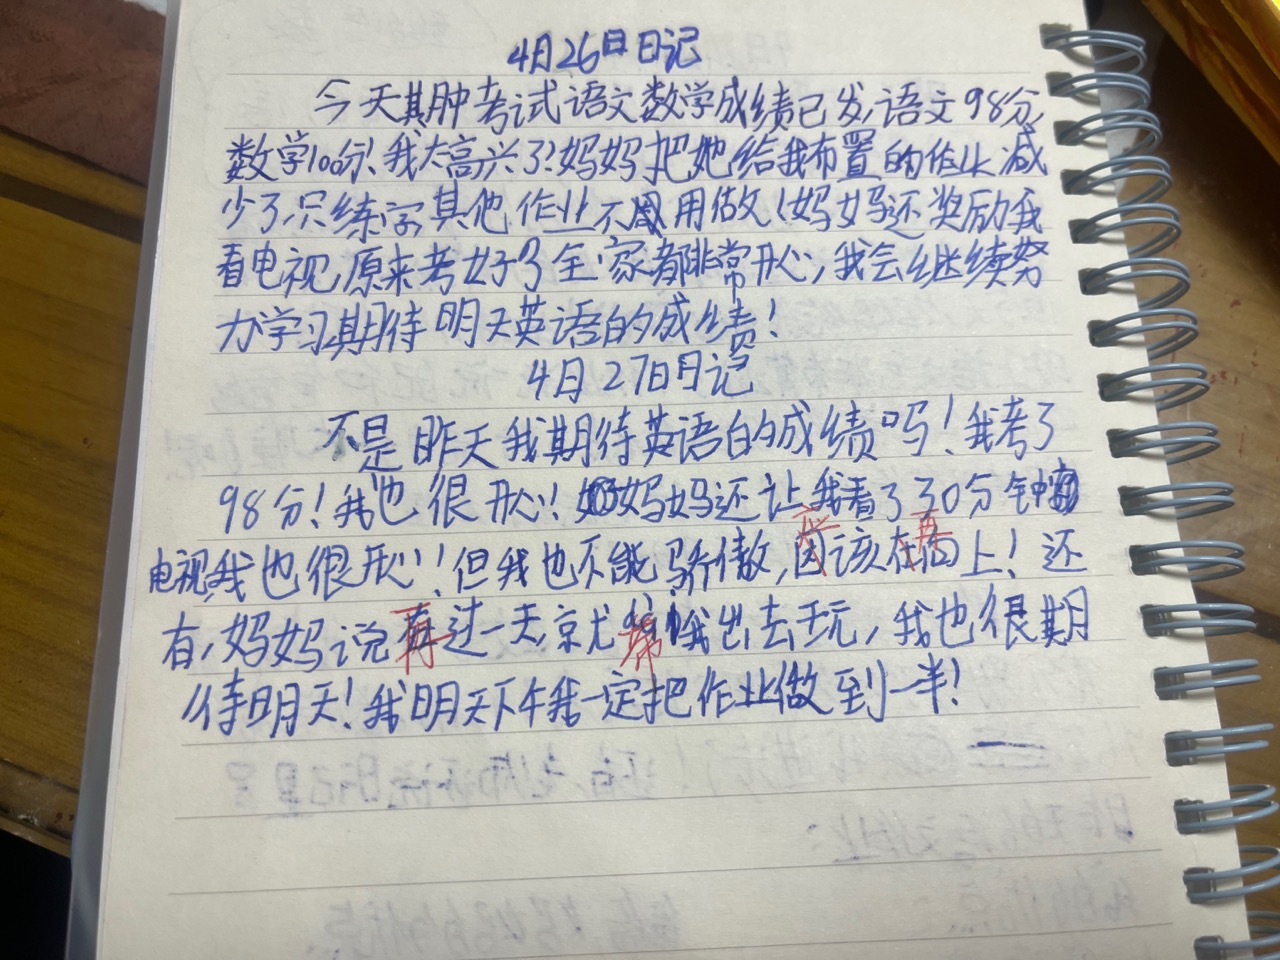 4月26日日记
今天其肿考试语文数学成绩已发,语文98分,
数学100分!我太高兴了!妈妈把她给我布置的作业减
少了,只练字其他作业不用做!妈妈还奖励我
看电视,原来考好了全家都非常开心,我会继续努
力学习期待明天英语的成绩!
4月27日日记
不是昨天我期待英语的成绩吗!我考了
98分!我也很开心!妈妈还让我看了30分钟
电视我也很开心!但我也不能骄傲,因该在向上!还
应 再
有,妈妈说再过一天,京尤 我出去玩,我也很期
再 带
待明天!我明天下午我一定把作业做到一半!